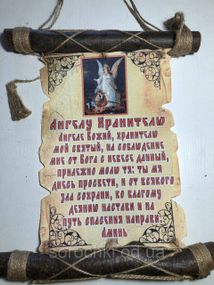 Ангелу Хранителю
Ангеле Божий, хранителю
мой святый, на соблюдение
мне от Бога с небесе данный,
прилежно молю тя: ты мя
днесь просвети, и от всякого
зла сохрани, ко благому
деянию настави и на
путь спасения направи.
Аминь